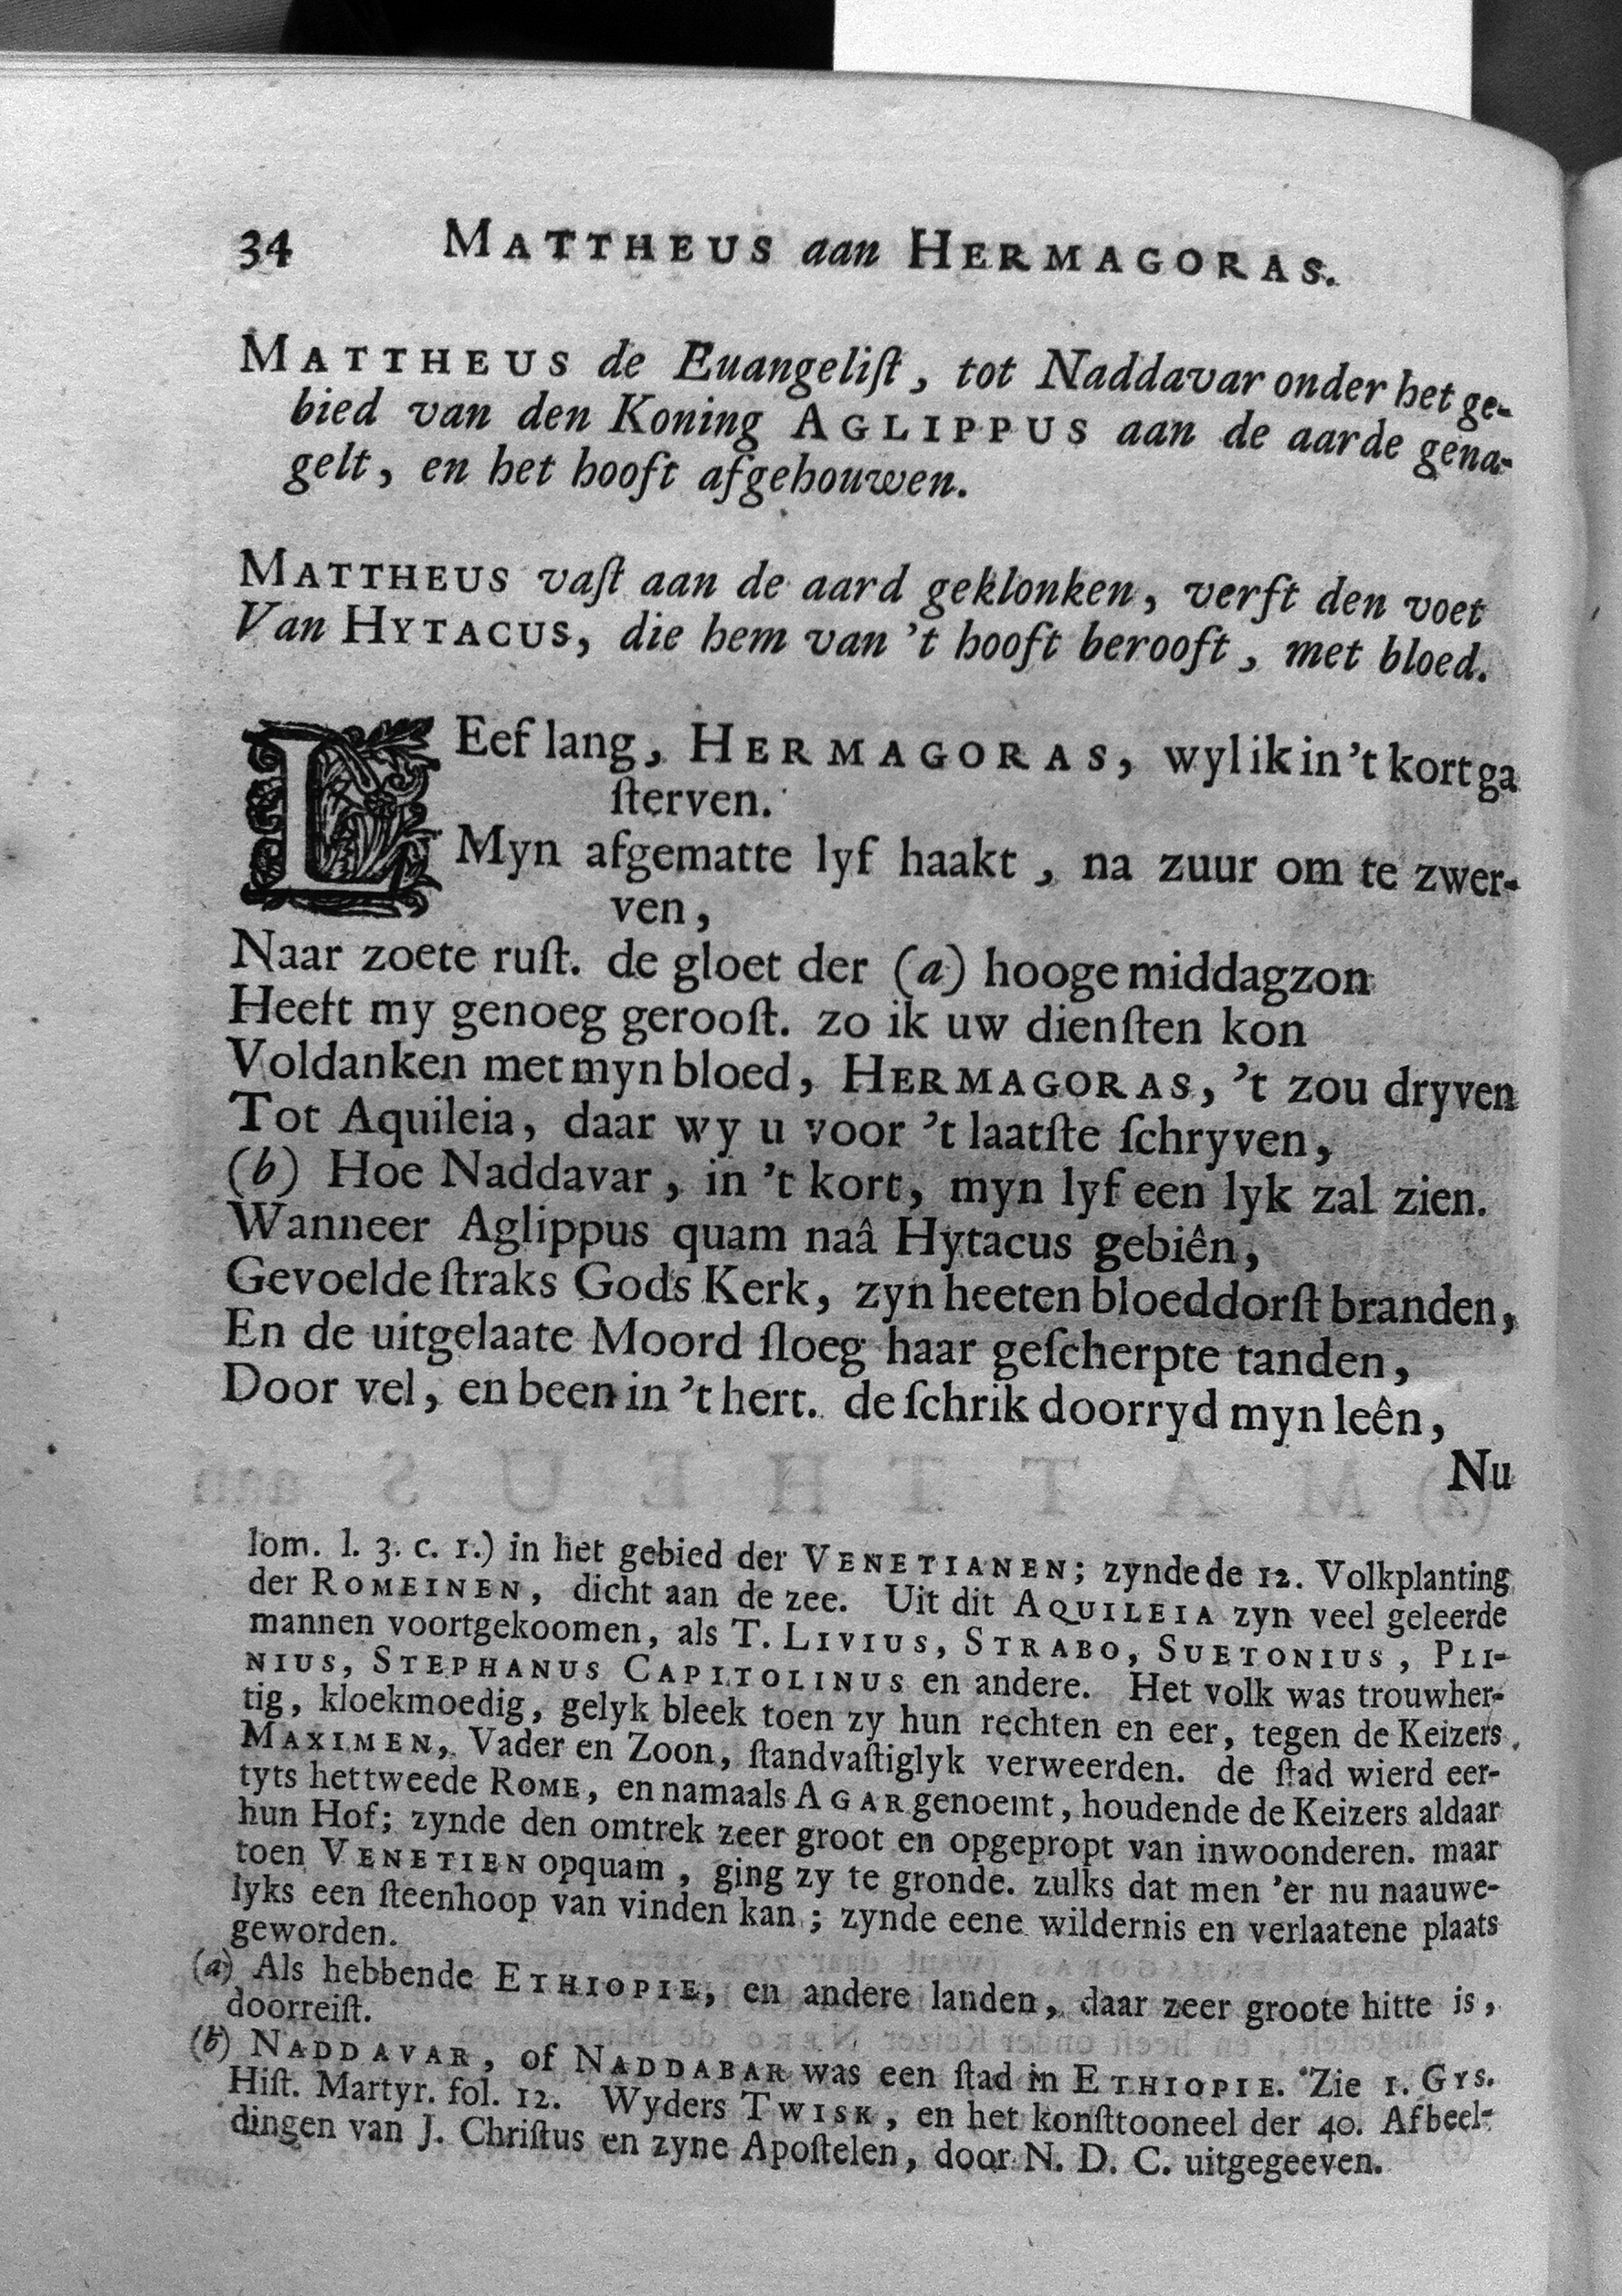 34 MATTHEUS aan HERMAGORAS.
MATTHEUS de Euangeliſt, tot Naddavar onder het ge-
bied van den Koning AGLIPPUS aan de aarde gena-
gelt, en het hooft afgehouwen.
MATTHEUS vaſt aan de aard geklonken, verft den voet
Van HYTACUS, die hem van 't hooft berooft, met bloed.
LEef lang, HERMAGORAS, wyl ik in 't kort ga
ſterven.
Myn afgematte lyf haakt, na zuur om te zwer-
ven,
Naar zoete ruſt. de gloet der (a) hooge middagzon
Heeft my genoeg gerooſt. zo ik uw dienſten kon
Voldanken met myn bloed, HERMAGORAS, 't zou dryven
Tot Aquileia, daar wy u voor 't laatſte ſchryven,
(b) Hoe Naddavar, in 't kort, myn lyf een lyk zal zien.
Wanneer Aglippus quam naâ Hytacus gebiên,
Gevoelde ſtraks Gods Kerk, zyn heeten bloeddorſt branden,
En de uitgelaate Moord ſloeg haar geſcherpte tanden,
Door vel, en been in 't hert. de ſchrik doorryd myn leên,
Nu
lom. l. 3. c. 1.) in het gebied der VENETIANEN; zynde de 12. Volkplanting
der ROMEINEN, dicht aan de zee. Uit dit AQUILEIA zyn veel geleerde
mannen voortgekoomen, als T. LIVIUS, STRABO, SUETONIUS, PLI-
NIUS, STEPHANUS CAPITOLINUS en andere. Het volk was trouwher-
tig, kloekmoedig, gelyk bleek toen zy hun rechten en eer, tegen de Keizers
MAXIMEN, Vader en Zoon, ſtandvaſtiglyk verweerden. de ſtad wierd eer-
tyts het tweede ROME, en namaals AGAR genoemt, houdende de Keizers aldaar
hun Hof; zynde den omtrek zeer groot en opgepropt van inwoonderen. maar
toen VENETIEN opquam, ging zy te gronde. zulks dat men 'er nu naauwe-
lyks een ſteenhoop van vinden kan; zynde eene wildernis en verlaatene plaats
geworden.
(a) Als hebbende ETHIOPIE, en andere landen, daar zeer groote hitte is,
doorreiſt.
(b) NADDAVAR, of NADDABAR was een ſtad in ETHIOPIE. Zie 1. GYS.
Hiſt. Martyr. fol. 12. Wyders TWISK, en het konſttooneel der 40. Afbeel-
dingen van J. Chriſtus en zyne Apoſtelen, door N. D. C. uitgegeeven.